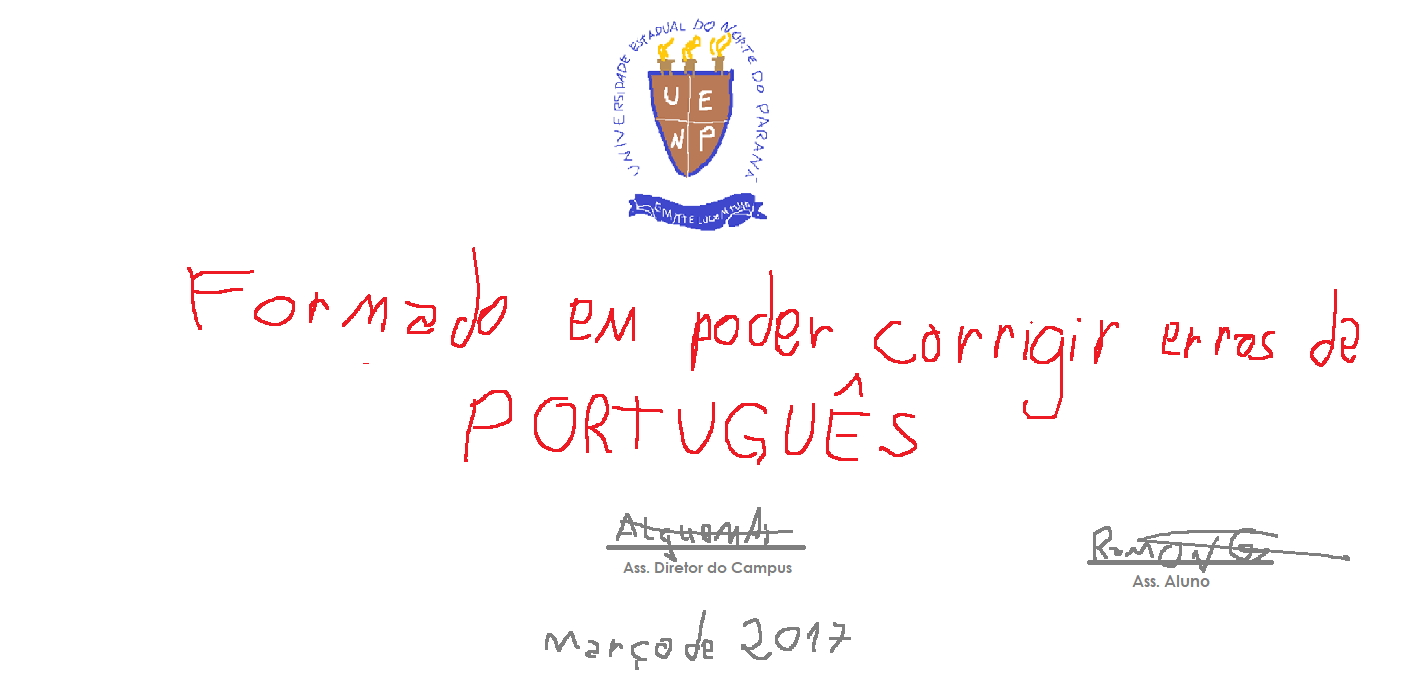 UNIVERSIDADE ESTADUAL DO NORTE DO PARANÁ
U E
N P
EMITTE LUCEM TUAM
Formado em poder corrigir erros de
PORTUGUÊS
Ass. Diretor do Campus
Ramon G
Ass. Aluno
março de 2017